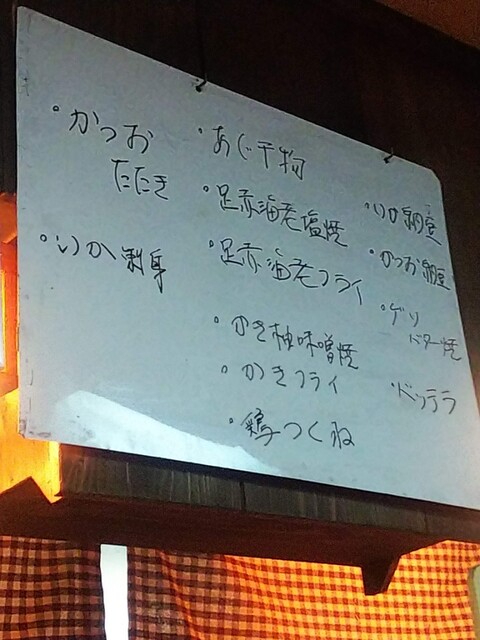 ・かつお
たたき
・いか刺身
・あじ干物
・足赤海老塩焼
・足赤海老フライ
・かき柚味噌焼
・かきフライ
・鶏つくね
・いか納豆
・かつお納豆
・ゲソ
バター焼
・ドッテラ